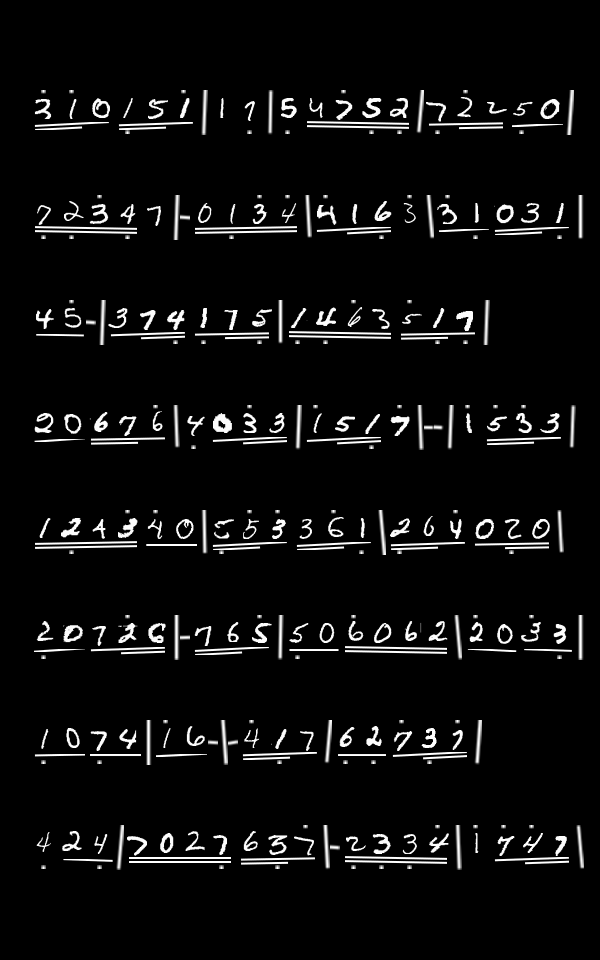 310151|17|54752|72250|
72347|-0134|4163|31031|
45-|374175|1463517|
20676|4033|1517--|1533|
124340|553361|264020|
20726|-765|506062|2033|
1074|16-|-417|62737|
424|7027637|-2334|1747|